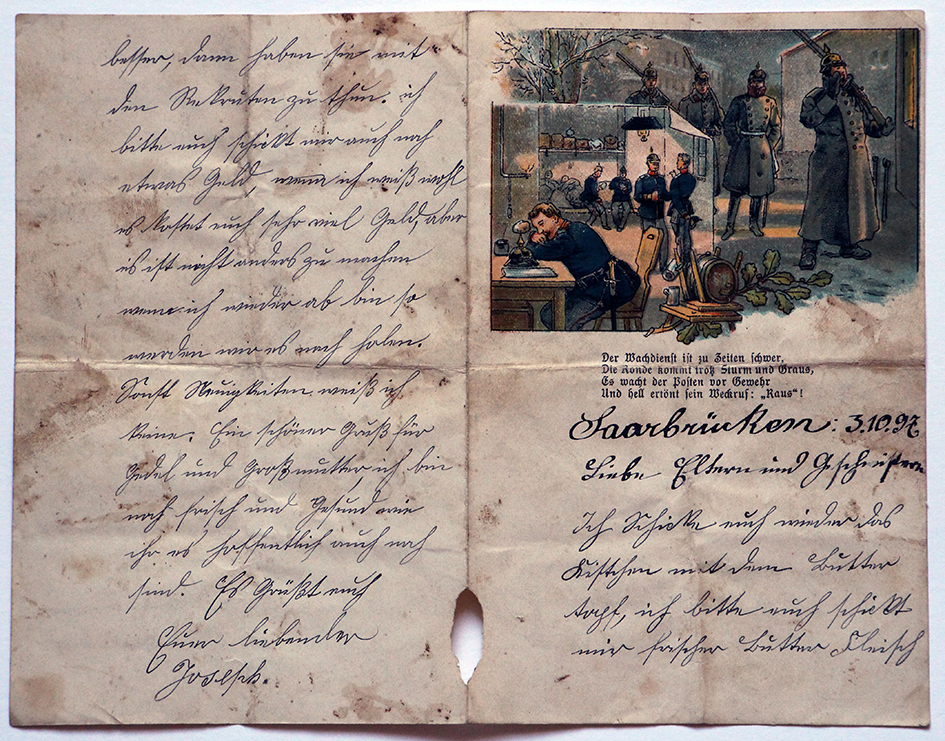 besser, dann haben sie mit
den Rekruten zu thun. ich
bitte euch schickt mir auch noch
etwas Geld, wenn ich weiß wohl
es kostet euch sehr viel Geld, aber
es ist nicht anders zu machen
wenn ich wieder ab bin so
werden wir es nach holen.
Sonst Neuigkeiten weiß ich
keine. Ein schöner Gruß für
und Großmutter ich bin
noch frisch und Gesund wie
ihr es hoffentlich auch noch
sind. Es Grüßt euch
Euer liebender
Der Wachdienst ist zu Zeiten schwer,
Die Ronde kommt trotz Sturm und Graus,
Es wacht der Posten vor Gewehr
Und hell ertönt sein Weckruf: „Raus“!
Saarbrücken: 3.10.97
Liebe Eltern und Geschwistern
Ich Schicke euch wieder das
Kistchen mit dem Butter
topf, ich bitte euch schickt
mir frischer Butter Fleisch